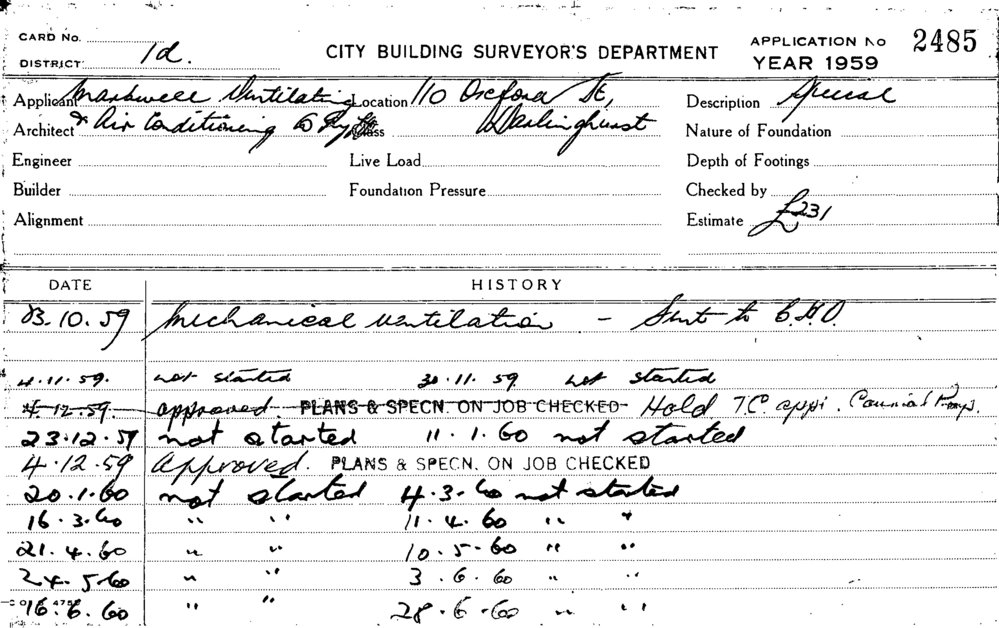 CARD No.
DISTRICT: 1d.
CITY BUILDING SURVEYOR'S DEPARTMENT
APPLICATION No 2485
YEAR 1959
Applicant Markwell Ventilating Location 110 Oxford St,
Architect & Air Conditioning Co Pty Class Darlinghurst
Engineer Live Load
Builder Foundation Pressure
Alignment
Description Special
Nature of Foundation
Depth of Footings
Checked by
Estimate £231
DATE HISTORY
13.10.59 Mechanical Ventilation - Sent to C.H.O.
4.11.59. not started 30.11.59 not started
4.12.59. approved PLANS & SPECN. ON JOB CHECKED Hold T.C. appi. Council Prop.
23.12.59 not started 11.1.60 not started
4.12.59 Approved. PLANS & SPECN. ON JOB CHECKED
20.1.60 not started 4.3.60 not started
16.3.60 " " 11.4.60 " "
21.4.60 " " 10.5.60 " "
24.5.60 " " 3.6.60 " "
16.6.60 " " 28.6.60 " "